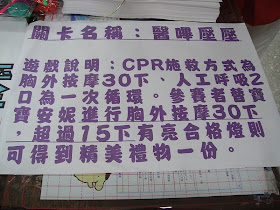 關卡名稱：醫嗶壓壓
遊戲說明：CPR施救方式為
胸外按摩30下、人工呼吸2
口為一次循環。參賽者替寶
寶安妮進行胸外按摩30下
，超過15下有亮合格燈則
可得到精美禮物一份。